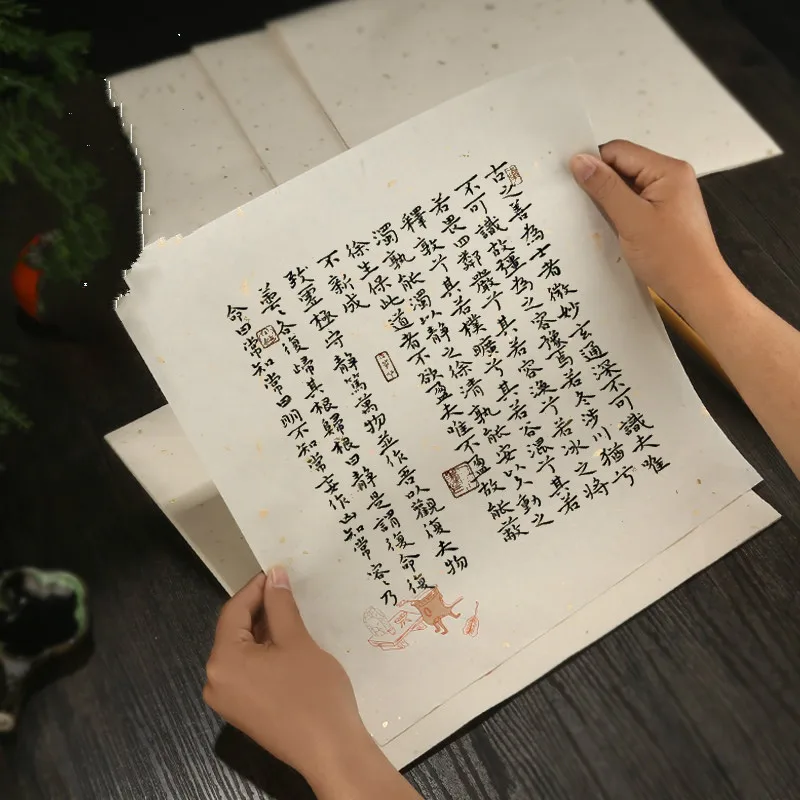 古之善為士者微妙玄通深不可識夫唯
不可識故彊為之容豫焉若冬涉川猶兮
若畏四鄰嚴兮其若容渙兮若冰之將
釋敦兮其若樸曠兮其若谷混兮其若
濁孰能濁以靜之徐清孰能安以久動之
徐生保此道者不欲盈夫唯不盈故能蔽
不新成
致虛極守靜篤萬物並作吾以觀復夫物
芸〻各復歸其根歸根曰靜是謂復命復
命曰常知常曰明不知常妄作凶知常容乃